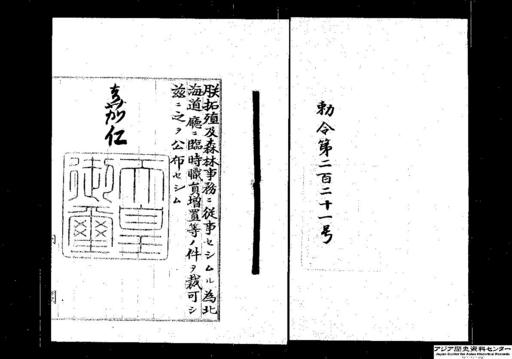 勅令第二百二十一号
朕拓殖及森林事務ニ従事セシムル為北
海道廳ニ臨時職員増置等ノ件ヲ裁可シ
茲ニ之ヲ公布セシム
嘉仁
天皇
御璽
アジア歴史資料センター
Japan Center for Asian Historical Records